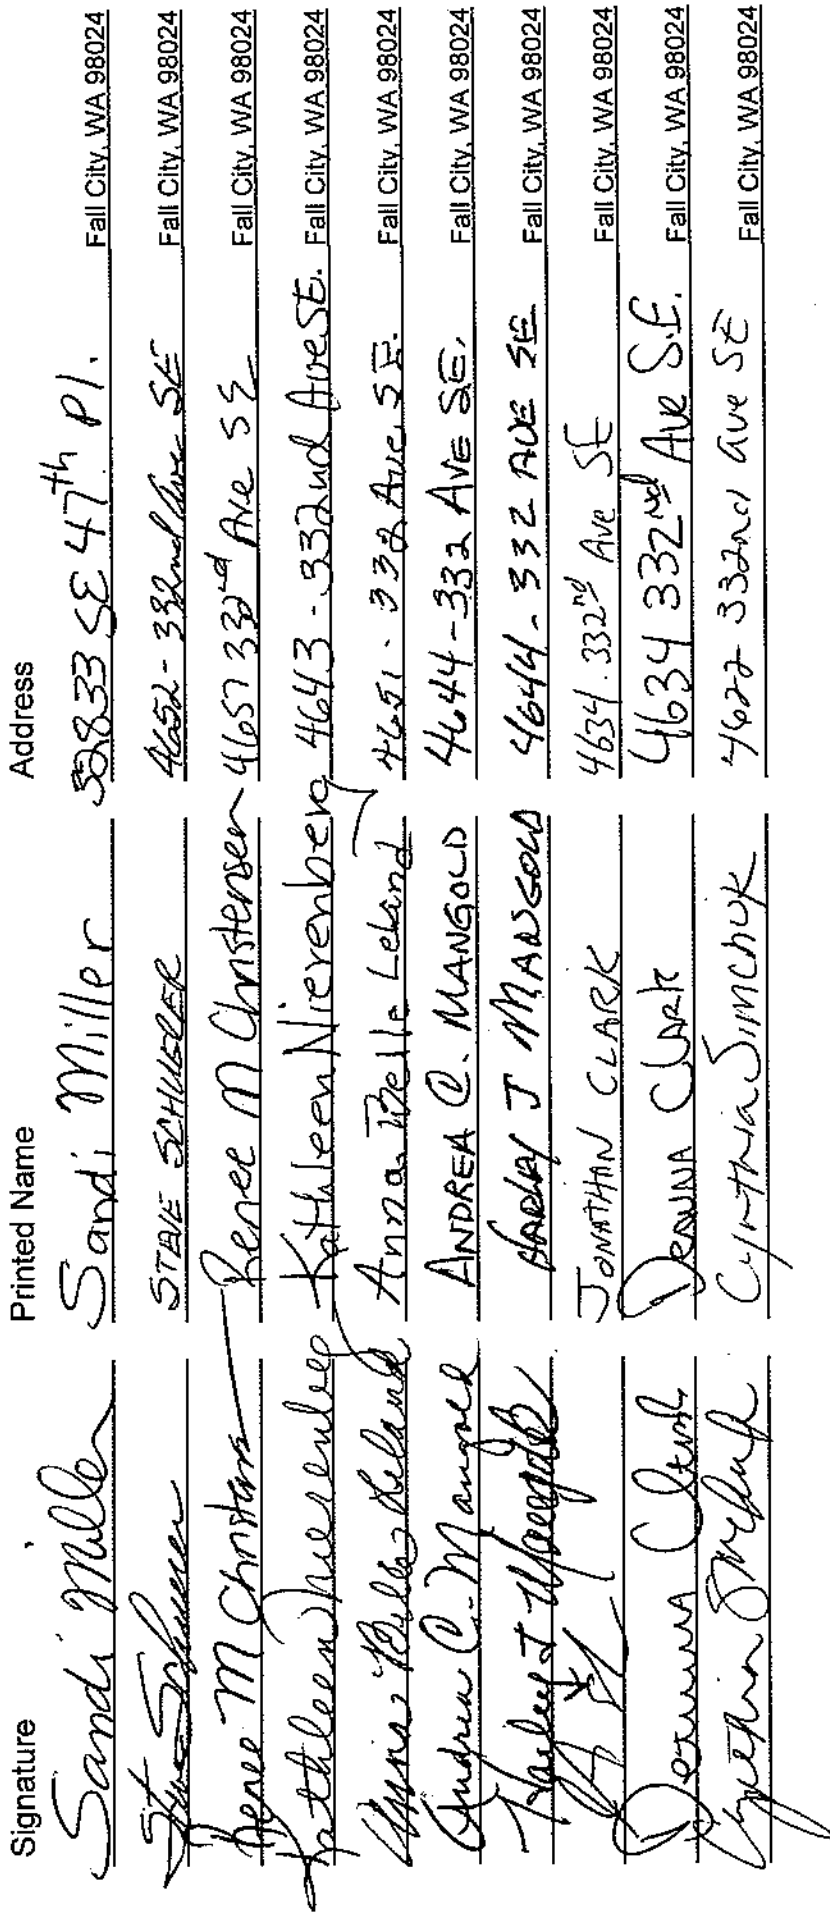 Signature Printed Name Address
Sandi Miller Sandi Miller 32833 SE 47th Pl. Fall City, WA 98024
Steve STEVE 4652-332nd Ave SE Fall City, WA 98024
Renee M Christensen Renee M Christensen 4657 332nd Ave SE Fall City, WA 98024
Kathleen Nierenberg Kathleen Nierenberg 4643-332nd Ave SE. Fall City, WA 98024
Anna Belle Leland Anna Belle Leland 4651-332 Ave SE. Fall City, WA 98024
Andrea C. Mangold ANDREA C. MANGOLD 4644-332 AVE SE. Fall City, WA 98024
Harley J Mangold HARLEY J MANGOLD 4644-332 AVE SE Fall City, WA 98024
JONATHAN CLARK 4634.332nd Ave SE Fall City, WA 98024
Deanna Clark DEANNA Clark 4634 332nd Ave S.E. Fall City, WA 98024
Cynthia Simchuk Cynthia Simchuk 4622 332nd ave SE Fall City, WA 98024